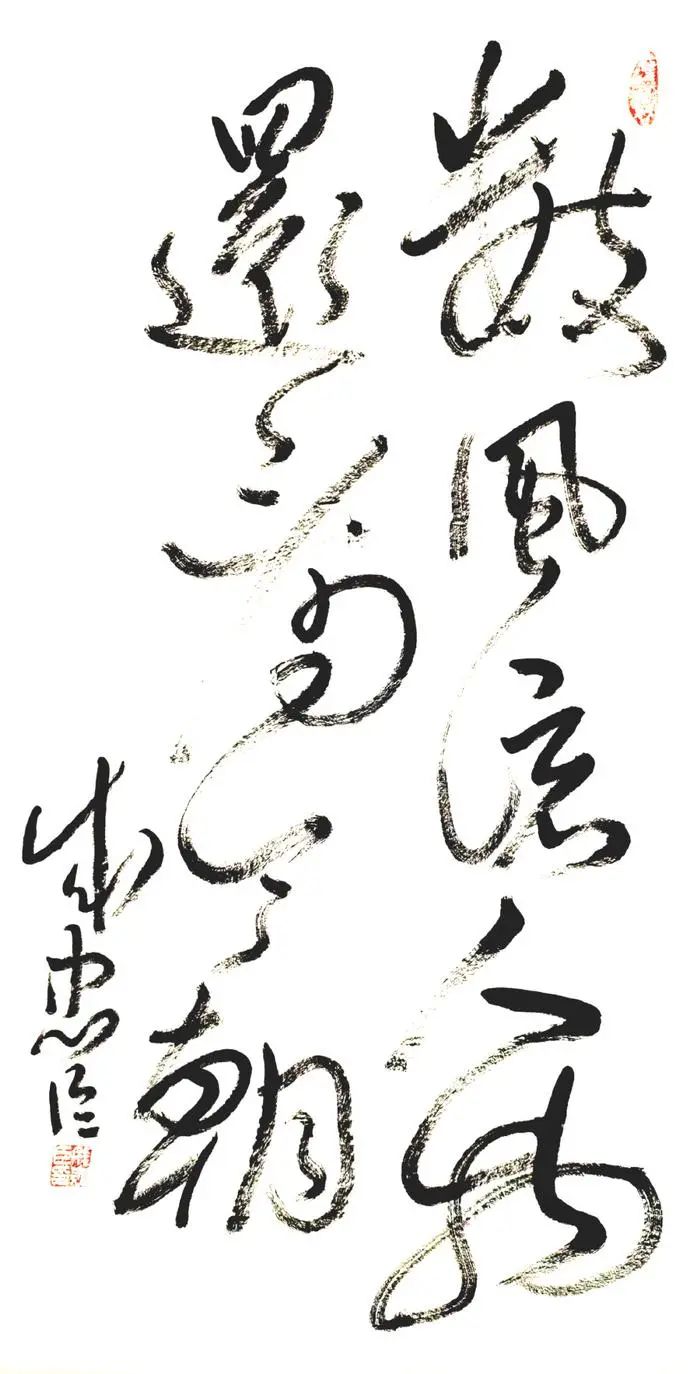 數風流人物
還看今朝
忠臣